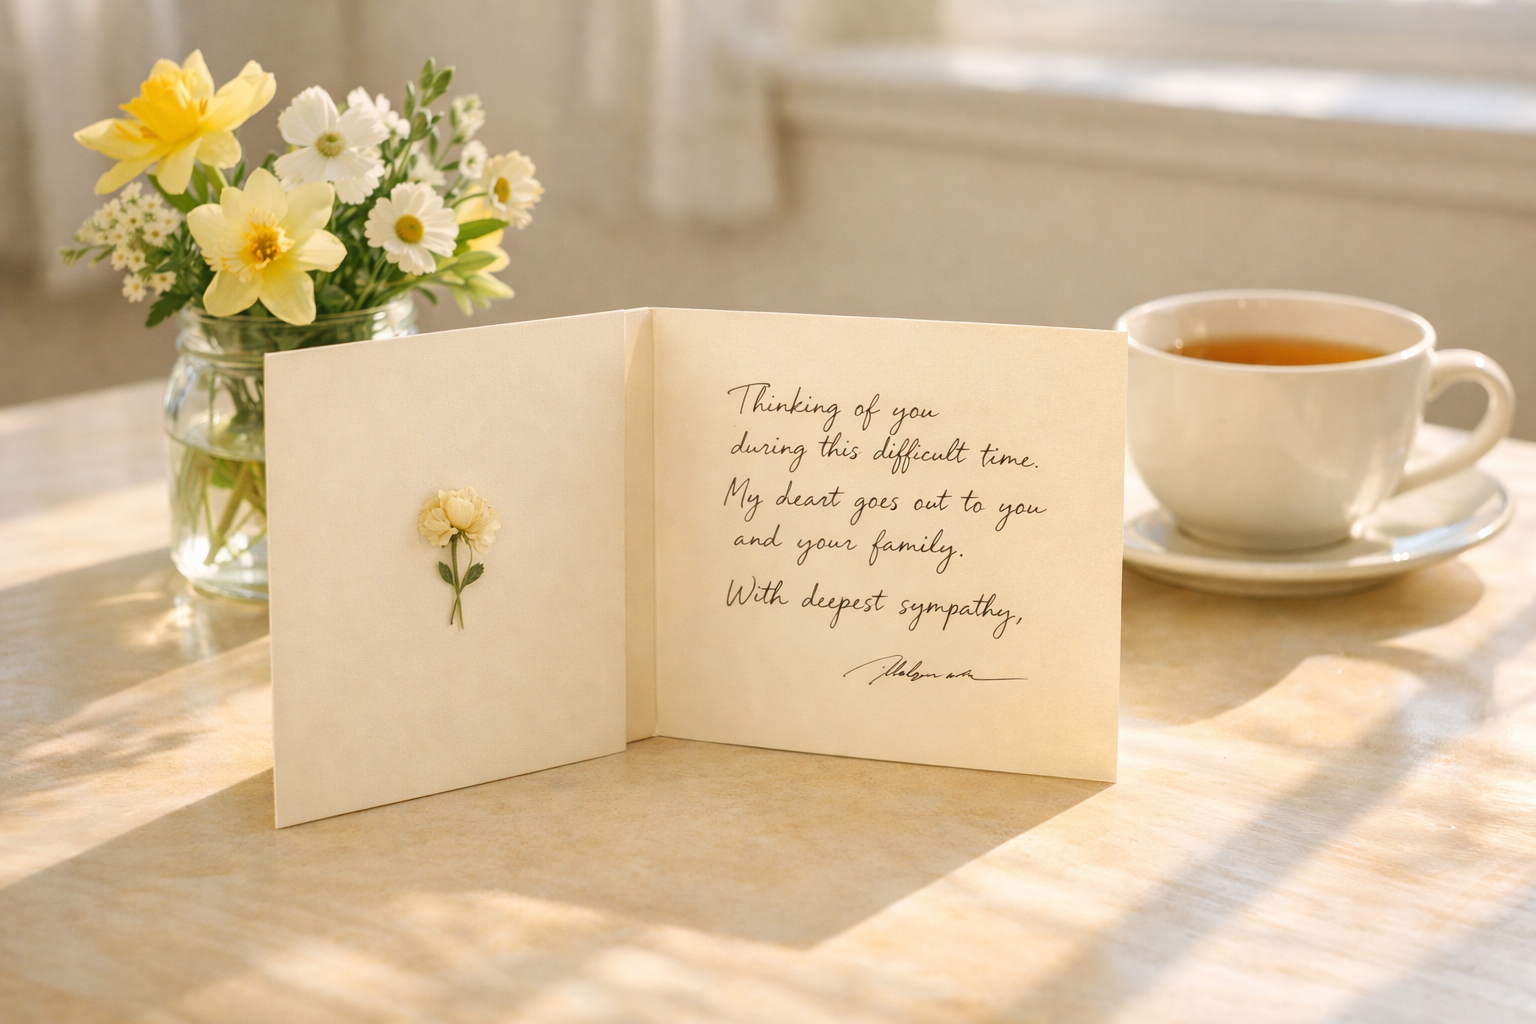 Thinking of you
during this difficult time.
My deart goes out to you
and your family.
With deepest sympathy,